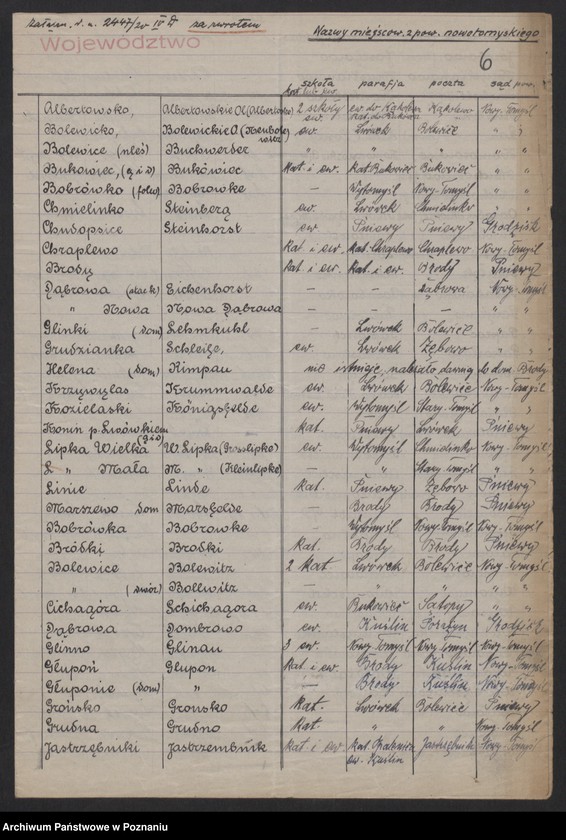 Załącz. d. a. 2447/20 IV D za zwrotem Nazwy miejscow. z pow. nowotomyskiego
Województwo
6
szkoła parafja poczta sąd pow.
kat. lub ew.
Albertowsko, Albertowskie Ol. (Albertoske) 2 szkoły ew. do Kąkolewa Kąkolewo Nowy-Tomyśl
ew. kat. do Bukowca
Bolewicko, Bolewickie Ol. (Neubole witz) ew. Lwówek Bolewice " "
Bolewice (nleś) Buchwerder " " " " "
Bukowiec, (g i d) Bukówiec kat. i ew. kat. Bukowiec Bukowiec " "
Bobrówko (folw) Bobrowke — Wytomyśl Nowy-Tomyśl " "
Chmielinko Steinberg ew. Lwówek Chmielinko " "
Chudopsice Steinhorst ew. Pniewy Pniewy Grodzisk
Chraplewo kat. i ew. kat. Chraplewo Chraplewo Nowy-Tomyśl
Brody kat. i ew. kat. i ew. Brody Pniewy
Dąbrowa Eichenhorst — — Dąbrowa Nowy-Tomyśl
" Nowa Nowa Dąbrowa — — — " "
Glinki (dom) Lehmkuhl — Lwówek Bolewice " "
Grudzianka Schleife, ew. Lwówek Zębowo " "
Helena (dom) Rimpau nie istnieje, należało dawniej do dom. Brody
Krzywylas Krummwalde ew. Lwówek Bolewice Nowy-Tomyśl
Kozielaski Königsfelde ew. Wytomyśl Stary-Tomyśl " "
Konin p. Lwówkiem (g i d) kat. Pniewy Lwówek Pniewy
Lipka Wielka W. Lipka (Grosslipke) ew. Wytomyśl Chmielinko Nowy-Tomyśl
L " Mała M. " (Kleinlipke) — " Stary Tomyśl " "
Linie Linde kat. Pniewy Zębowo Pniewy
Marszewo dom Marsfelde — Brody Brody Pniewy
Bobrówka Bobrowke — Wytomyśl Nowy-Tomyśl Nowy-Tomyśl
Bródki Brodki kat. Brody Brody Pniewy
Bolewice Bolewitz 2 kat Lwówek Bolewice Nowy-Tomyśl
" (dwór) Bollwitz " " " "
Cichagóra Schichagora ew. Bukowiec Sątopy " "
Dąbrowa Dombrowo ew. Kuślin Grodzisk
Glinno Glinau 3 ew. Nowy-Tomyśl Nowy-Tomyśl Nowy-Tomyśl
Głupoń Glupon kat. i ew. Brody Kuślin Nowy-Tomyśl
Głuponie (dom) " — Brody Kuślin Nowy-Tomyśl
Grońsko Gronsko kat. Lwówek Bolewice Pniewy
Grudna Grudno kat " " Nowy-Tomyśl
Jastrzębniki Jastrzembnik kat. i ew. kat. Jastrzębniki Nowy-Tomyśl
ew. Kuślin
Archiwum Państwowe w Poznaniu